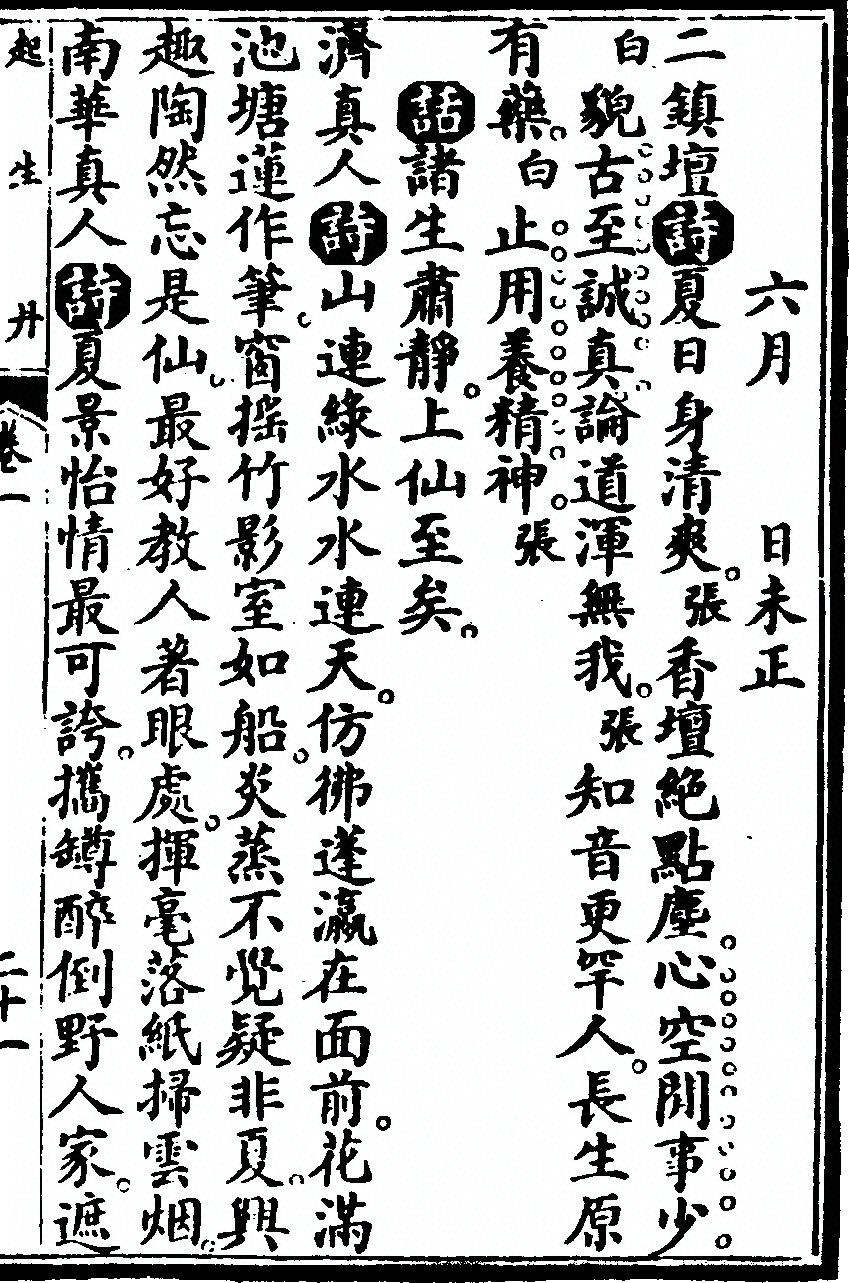 六月　日未正
二鎮壇詩夏日身清爽張香壇絕點塵心空閒事少
白貌古至誠真論道渾無我張知音更罕人長生原
有藥白止用養精神張
話諸生肅靜上仙至矣
濟真人詩山連綠水水連天仿彿蓬瀛在面前花滿
池塘蓮作筆窗搖竹影室如船炎蒸不覺疑非夏興
趣陶然忘是仙最好教人著眼處揮毫落紙掃雲烟
南華真人詩夏景怡情最可誇攜罇醉倒野人家遮
起生丹　卷一　二十一